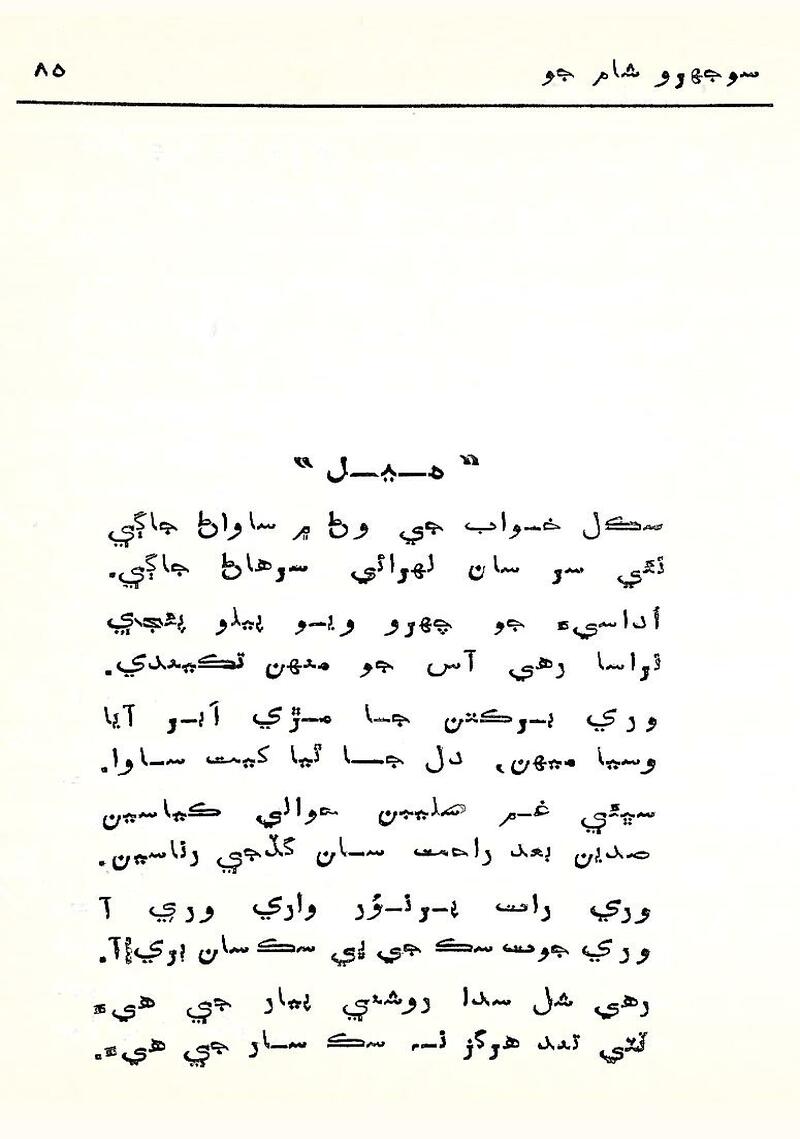 سوجھرو شام جو
۸۵
” ميل “
سڪل خواب جي وڻ ۾ ساواڻ جاڳي
نئي سر سان لهرائي سرهاڻ جاڳي.
اُداسيءَ جو چهرو ويو پيلو پئجي
نراسا رهي آس جو منهن تڪيندي.
وري برڪتن جا مڙي اَبر آيا
وسيا مينهن، دل جا ٿيا کيت ساوا.
سڀئي غم صليبن حوالي ڪياسين
صدين بعد راحت سان گڏجي رئاسين.
وري رات پرنُور واري وري آ
وري جوت سڪ جي ٻي سڪ سان ٻري آ.
رهي شل سدا روشني پيار جي هيءَ
ٽٽي تند هرگز نہ سڪ سار جي هيءَ.